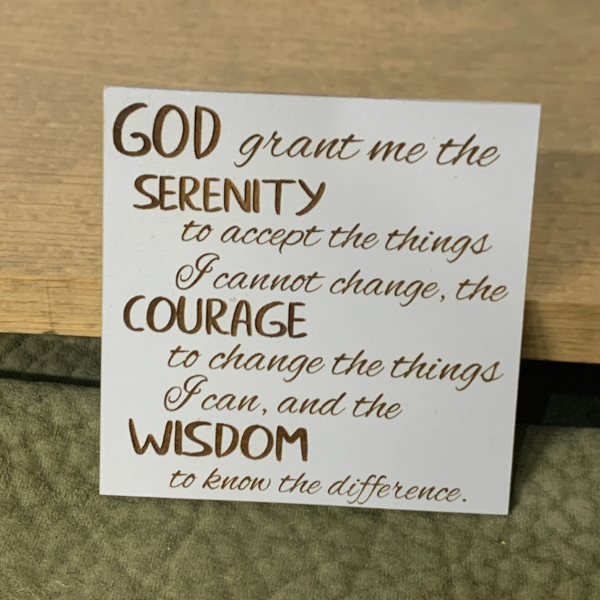 GOD grant me the
SERENITY
to accept the things
I cannot change, the
COURAGE
to change the things
I can, and the
WISDOM
to know the difference.